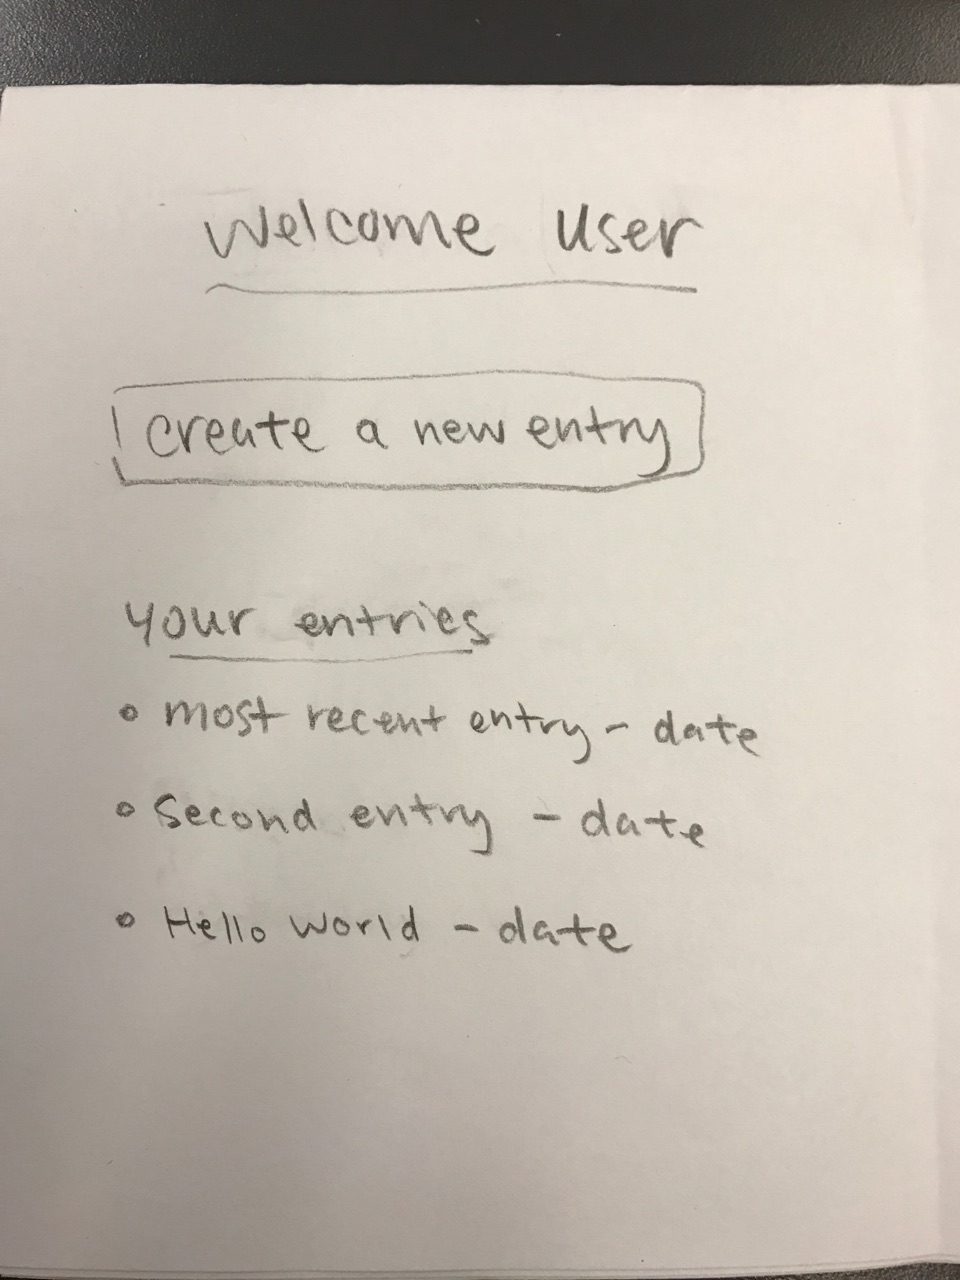 Welcome User
create a new entry
your entries
• most recent entry - date
• Second entry - date
• Hello World - date